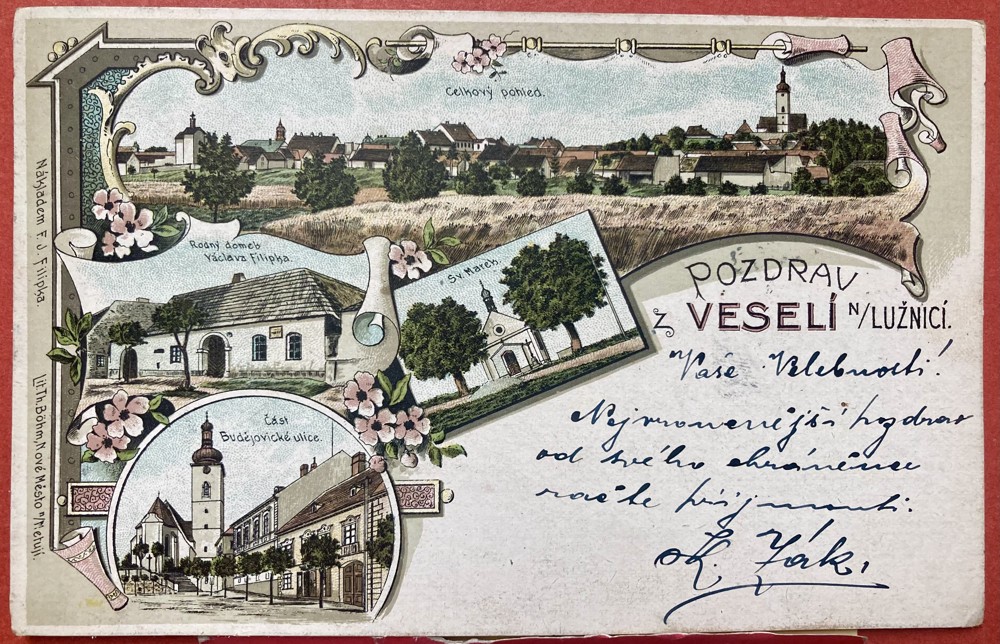 Celkový pohled.
Rodný domek
Václava Filipka.
Sv. Marek.
Část
Budějovické ulice.
Nákladem F. J. Filipka.
lit. Th. Böhm, Nové Město n/Metují.
POZDRAV
z VESELÍ N/LUŽNICÍ.
Vaše Velebnosti!
Nejvronenější pozdrav
od svého chráněnce
račte přijmouti.
K. Žák,